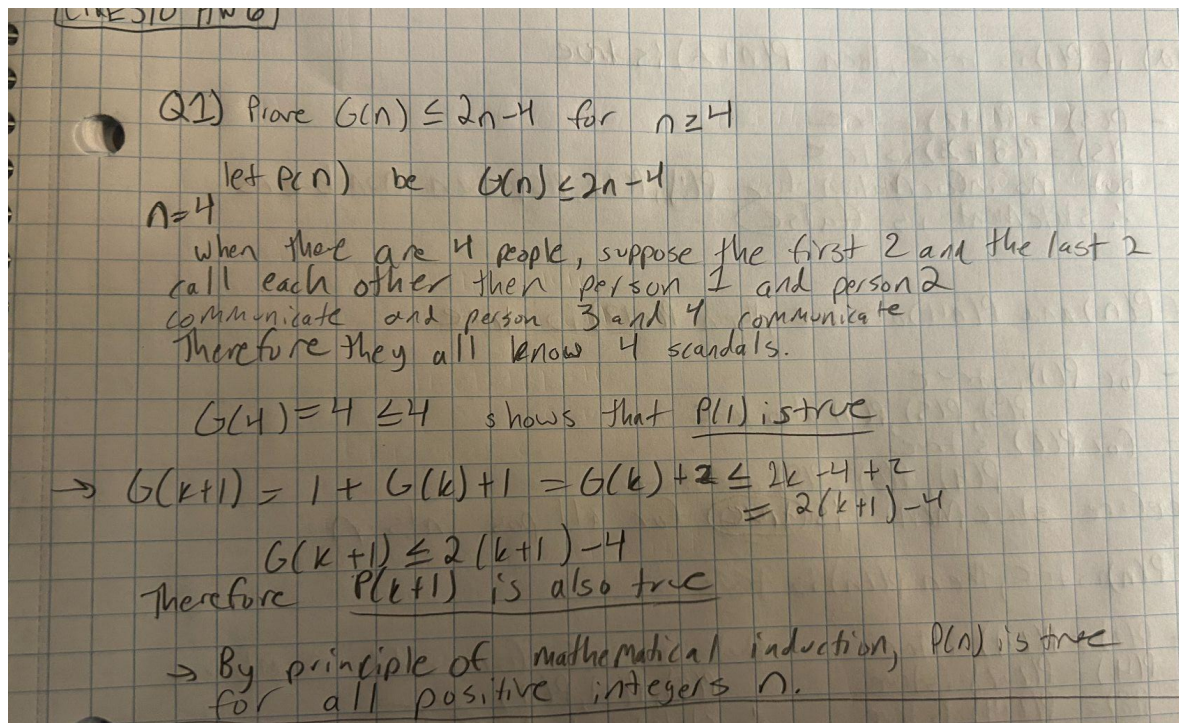 Q1) Prove G(n) ≤ 2n-4 for n ≥ 4
let P(n) be G(n) ≤ 2n-4
n=4
when there are 4 people, suppose the first 2 and the last 2
call each other then person 1 and person 2
communicate and person 3 and 4 communicate
Therefore they all know 4 scandals.
G(4) = 4 ≤ 4 shows that P(1) is true
→ G(k+1) = 1 + G(k) + 1 = G(k) + 2 ≤ 2k - 4 + 2
= 2(k+1) - 4
G(k+1) ≤ 2(k+1) - 4
Therefore P(k+1) is also true
→ By principle of mathematical induction, P(n) is true
for all positive integers n.